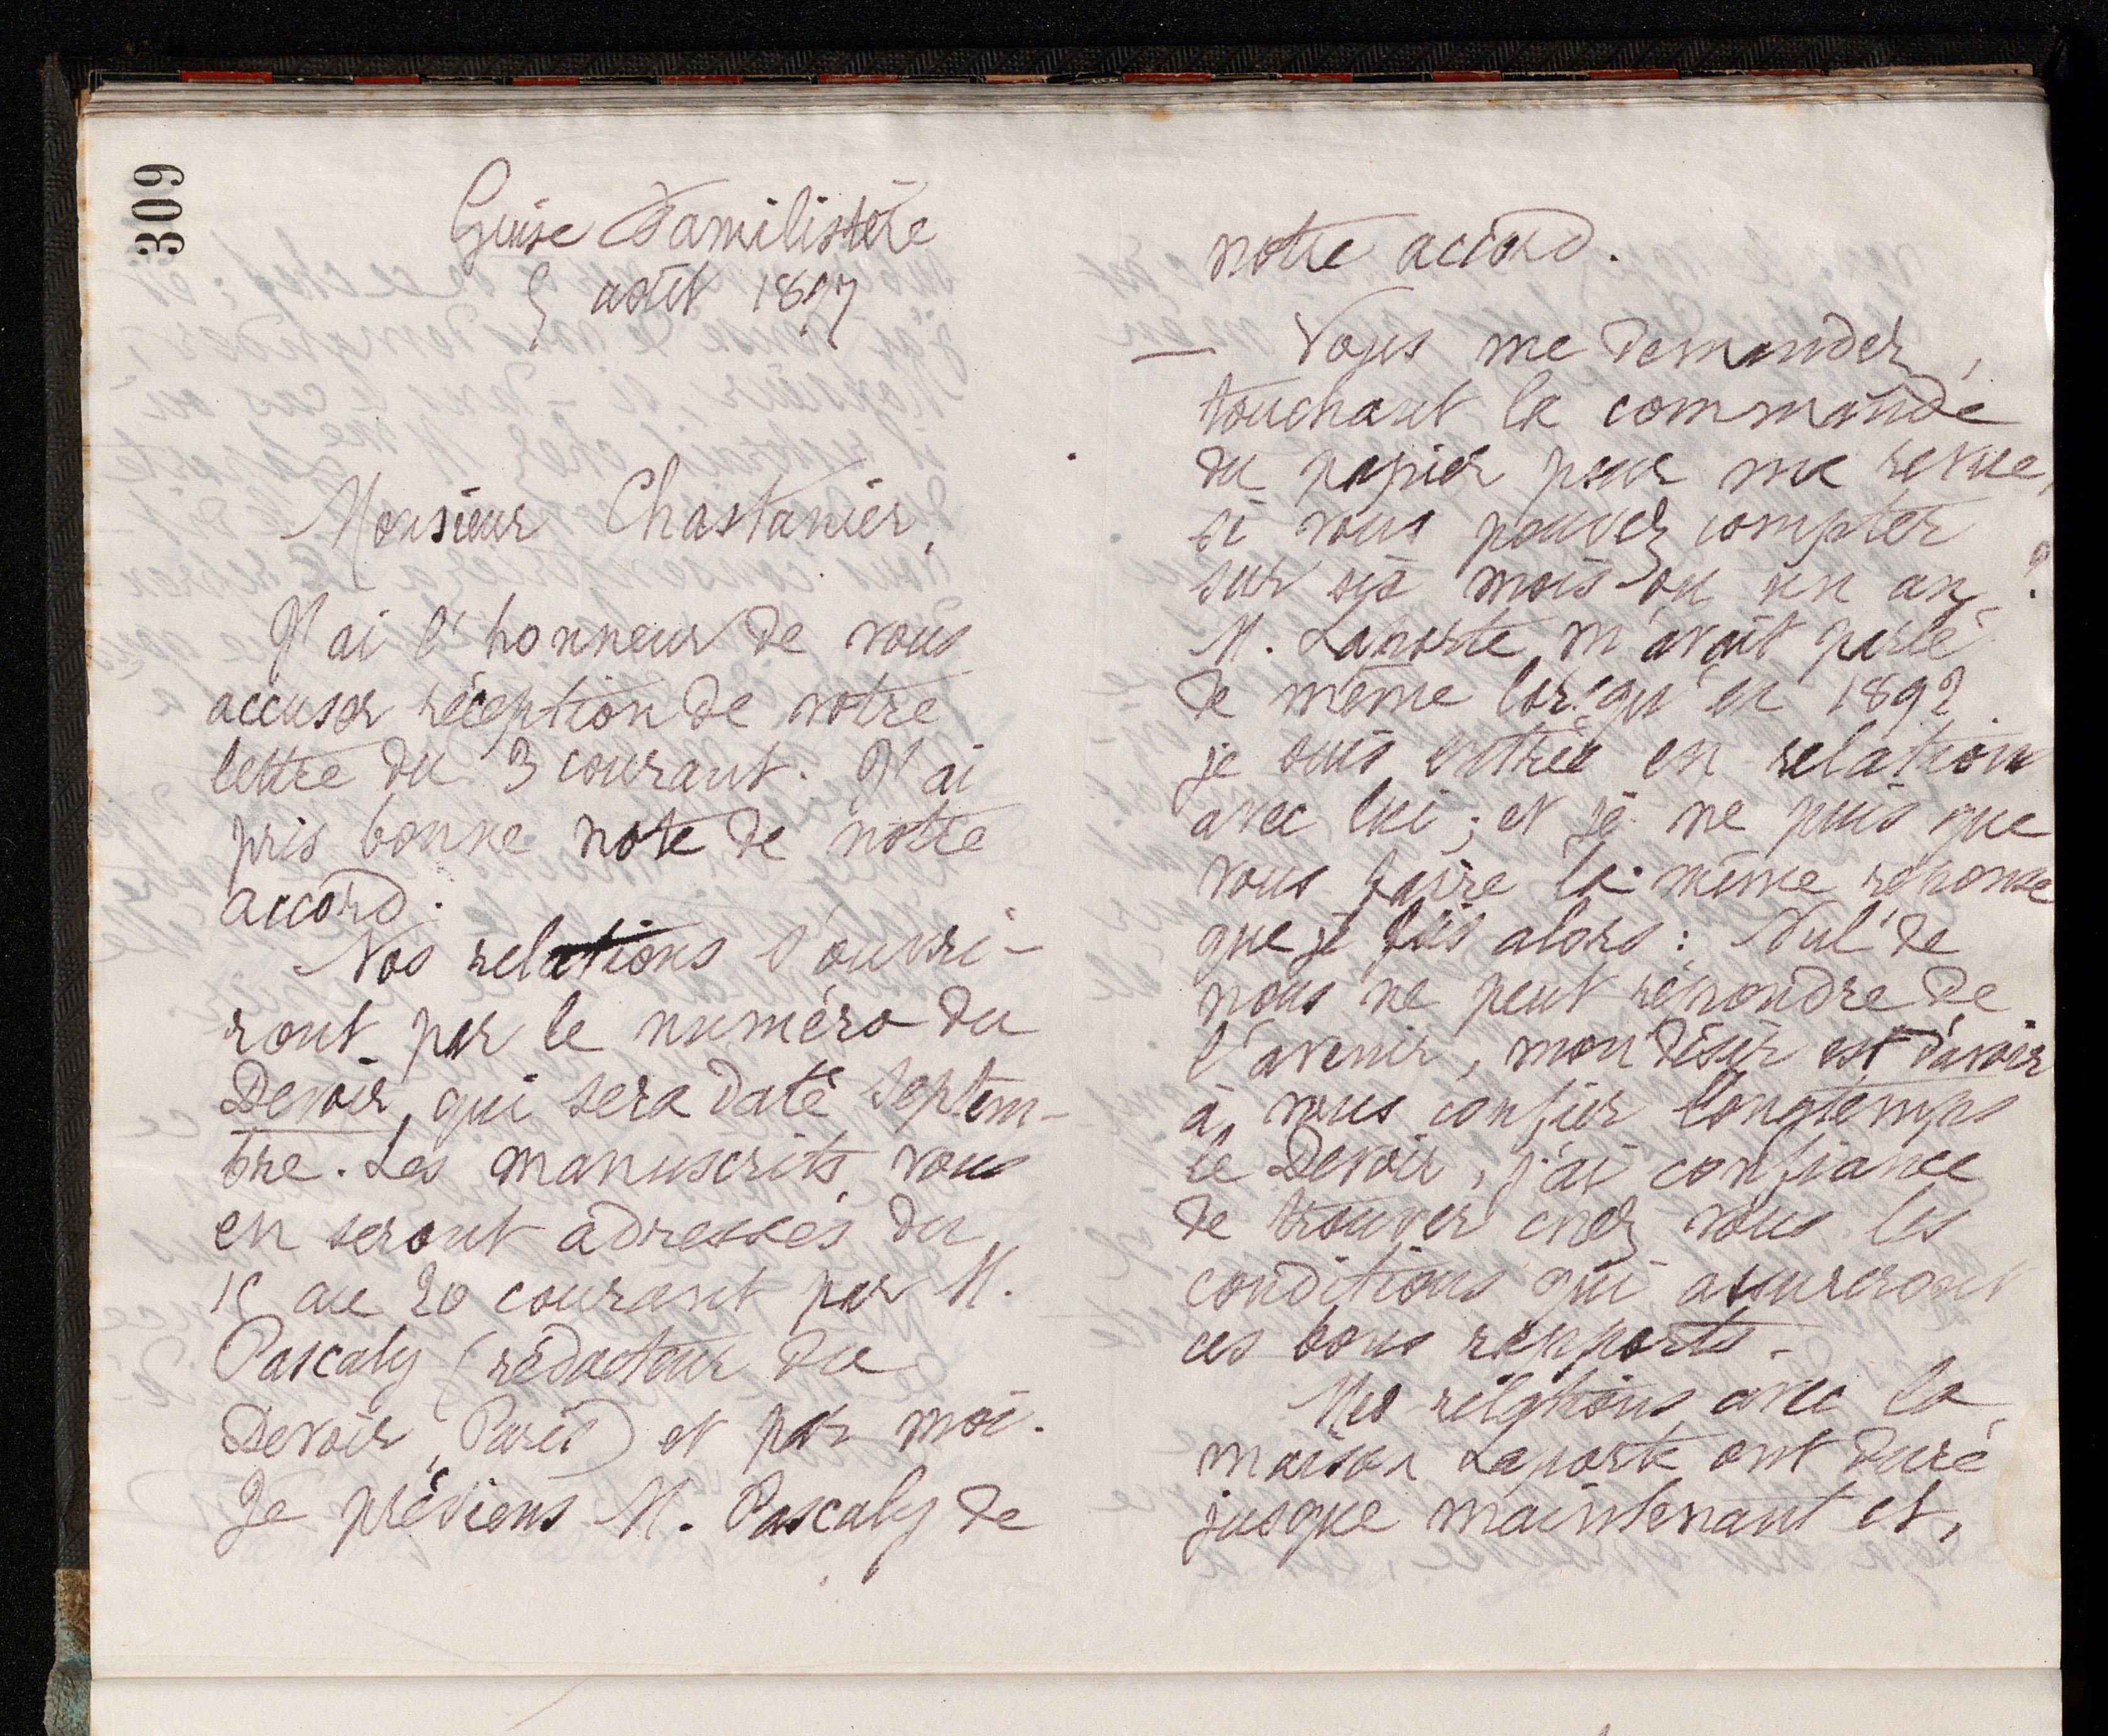 309
Guise Familistère
5 août 1897
Monsieur Chastanier,
J'ai l'honneur de vous
accuser réception de votre
lettre du 3 courant. J'ai
pris bonne note de notre
accord.
Nos relations s'ouvri-
ront par le numéro du
Devoir qui sera daté septem-
bre. Les manuscrits vous
en seront adressés du
15 au 20 courant par M.
Pascaly (rédacteur du
Devoir, Paris) et par moi.
Je préviens M. Pascaly de
notre accord.
— Vous me demandez,
touchant la commande
du papier pour ma revue,
si vous pouvez compter
sur six mois ou un an ?
M. Laporte m'avait parlé
de même lorsqu'en 1892
je suis entrée en relation
avec lui ; et je ne puis que
vous faire la même réponse
que je fis alors : Nul de
nous ne peut répondre de
l'avenir, mon désir est d'avoir
à vous confier longtemps
le Devoir, j'ai confiance
de trouver chez vous les
conditions qui assureront
ces bons rapports.
Mes relations avec la
maison Laporte ont duré
jusque maintenant et,